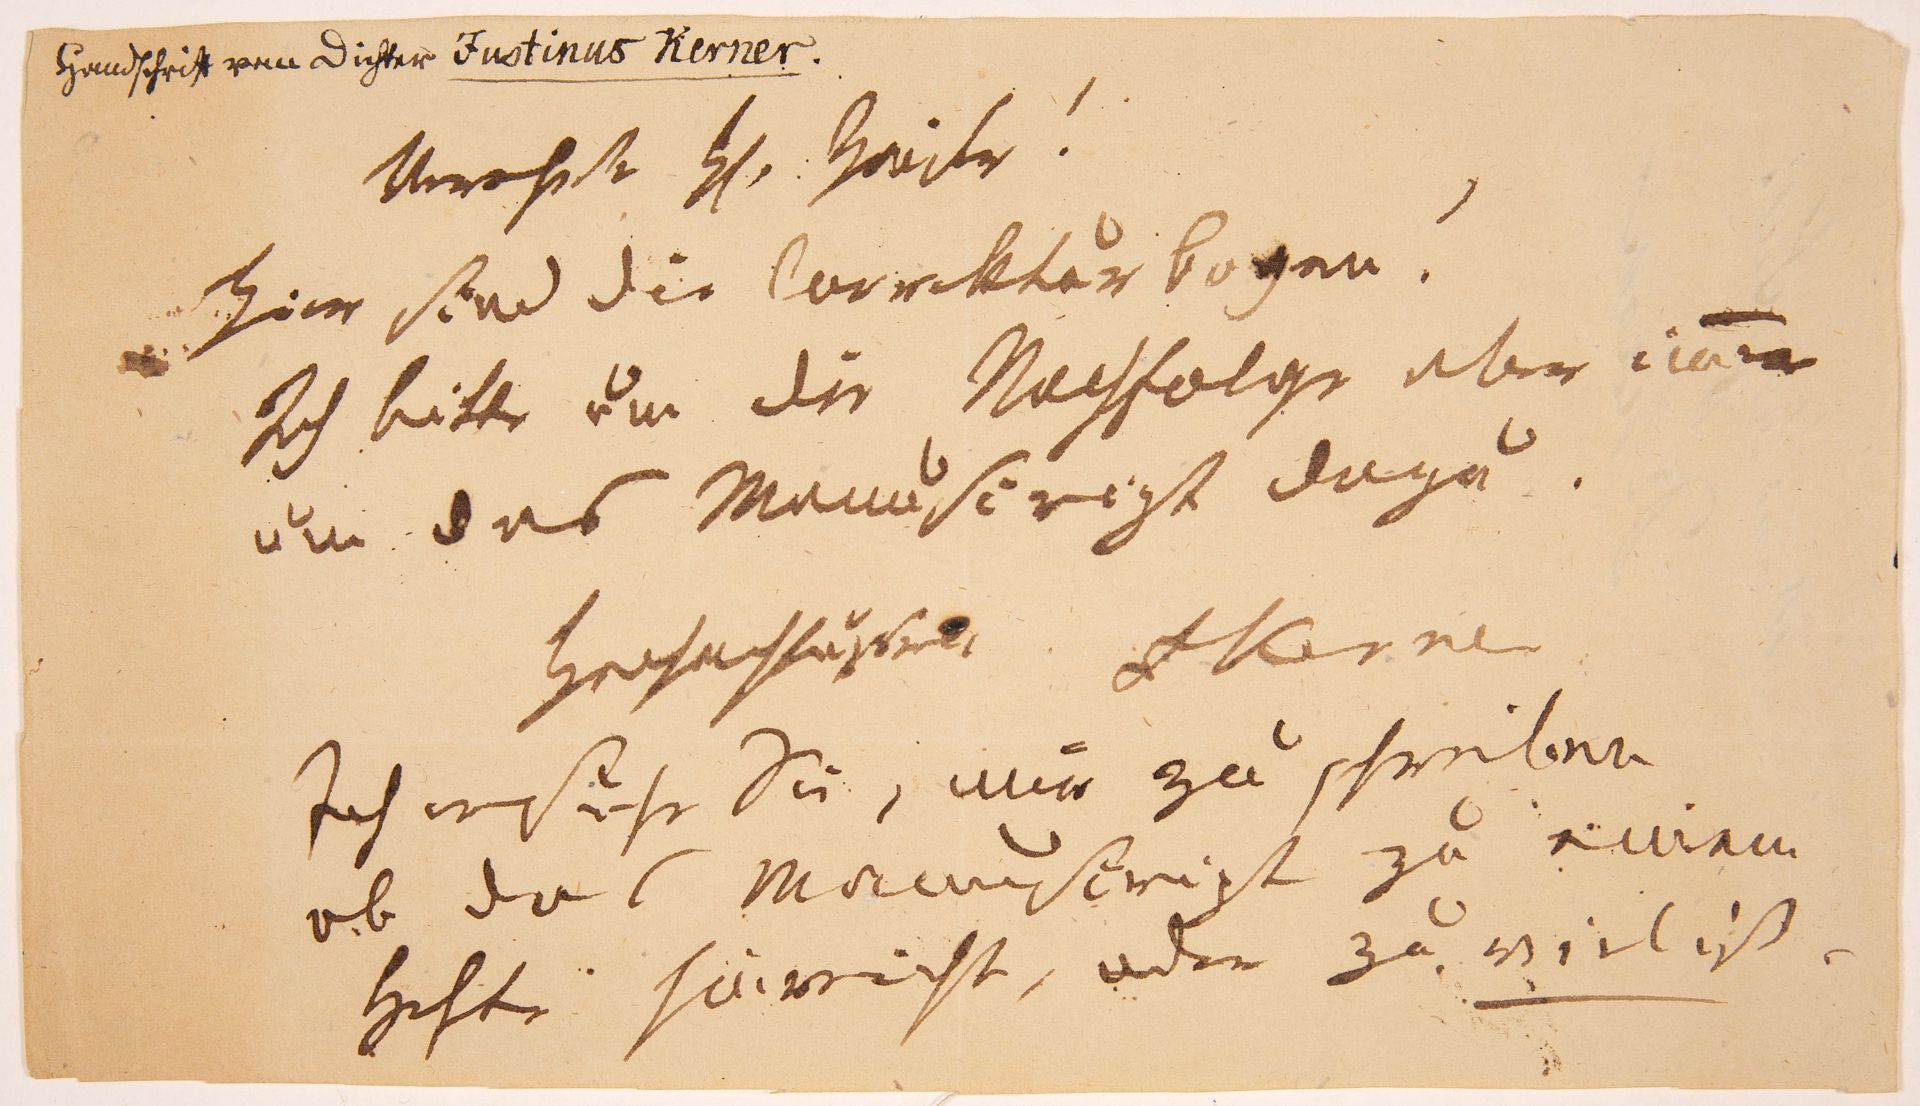 Handschrift vom Dichter Justinus Kerner.
Verehrter H.!
Hier sind die Correkturbogen!
Ich bitte um die Nachfolge aber immer
um das Manuscript dazu.
Hochachtungsvoll JKerner
Ich ersuche Sie, mir zu schreiben
ob das Manuscript zu einem
Hefte hinreicht, oder zu viel ist.